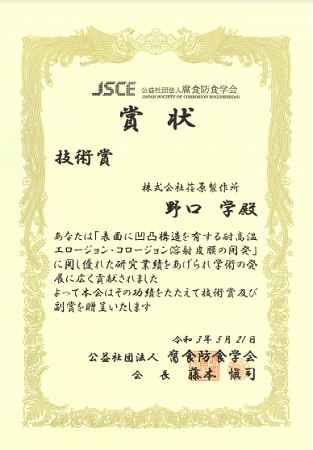 JSCE 公益社団法人腐食防食学会
JAPAN SOCIETY OF CORROSION ENGINEERING
賞状
技術賞
株式会社荏原製作所
野口 学殿
あなたは「表面に凹凸構造を有する耐高温
エロージョン・コロージョン溶射皮膜の開発」
に関し優れた研究業績をあげられ学術の発
展に広く貢献されました
よって本会はその功績をたたえて技術賞及び
副賞を贈呈いたします
令和3年5月21日
公益社団法人 腐食防食学会
会長 藤本 愼司